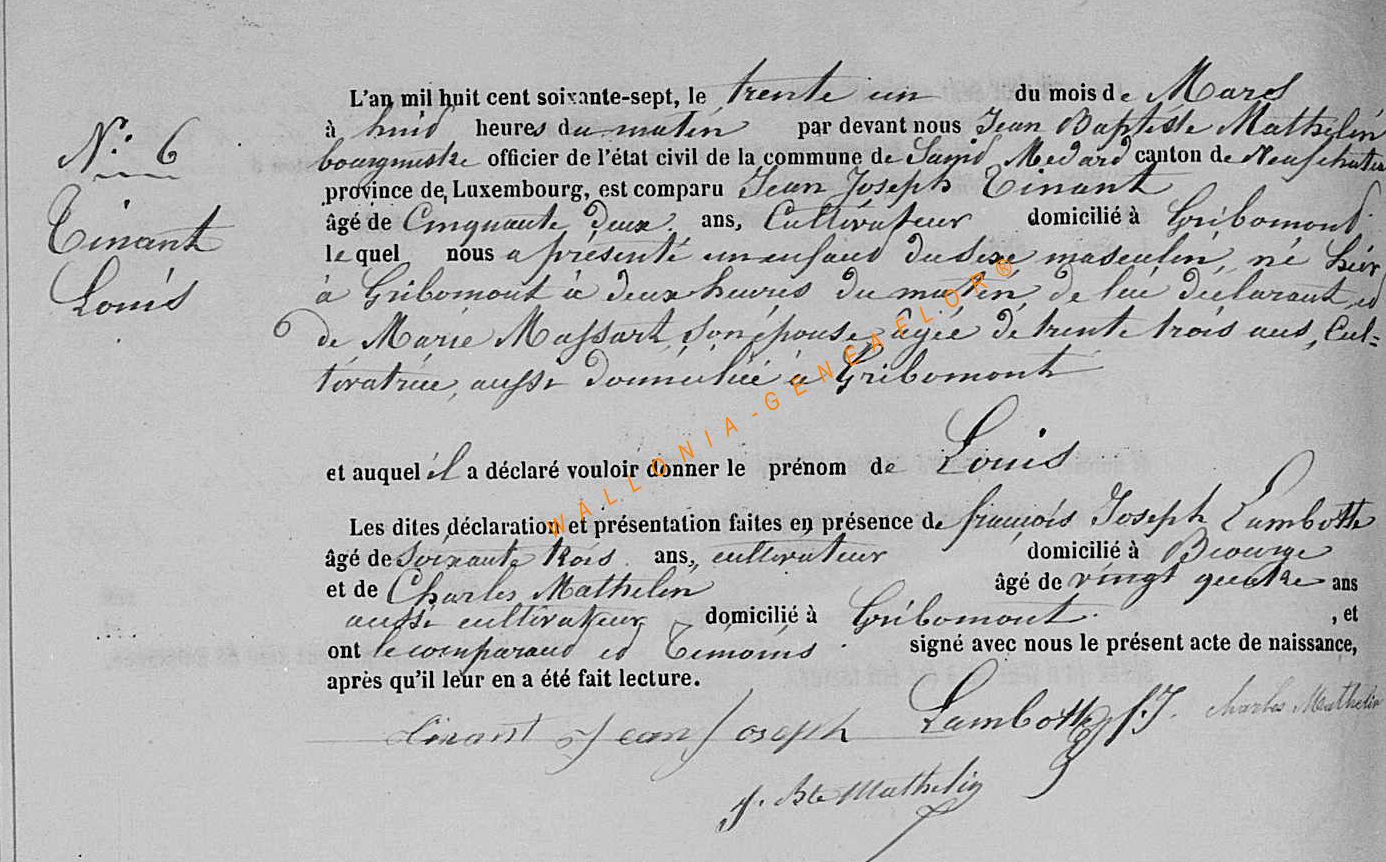 N.° 6
Tinant
Louis
L'an mil huit cent soixante-sept, le trente un du mois de Mars
à huid heures du matin par devant nous Jean Baptiste Mathelin
bourgmestre officier de l'état civil de la commune de Saind Medard canton de Neufchateau
province de Luxembourg, est comparu Jean Joseph Tinant
âgé de Cinquante deux ans, Cultivateur domicilié à Gribomont
le quel nous a présenté un enfand du sexe masculin, né hier
à Gribomont à deux heures du matin, de lui déclarant ed
de Marie Massart, son épouse, agée de trente trois ans, Cul=
tivatrice, aussi domiciliée à Gribomont
et auquel il a déclaré vouloir donner le prénom de Louis
Les dites déclaration et présentation faites en présence de françois Joseph Lambotte
âgé de soixante trois ans, cultivateur domicilié à
et de Charles Mathelin âgé de vingt quatre ans
aussi cultivateur domicilié à Gribomont , et
ont le comparand ed Témoins signé avec nous le présent acte de naissance,
après qu'il leur en a été fait lecture.
tinant Jean Joseph Lambotte f.J. Charles Mathelin
J. Bte Mathelin
WALLONIA-GENEAELOR®